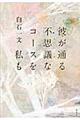 彼が通る
不思議な
コースを
私も
白石一文